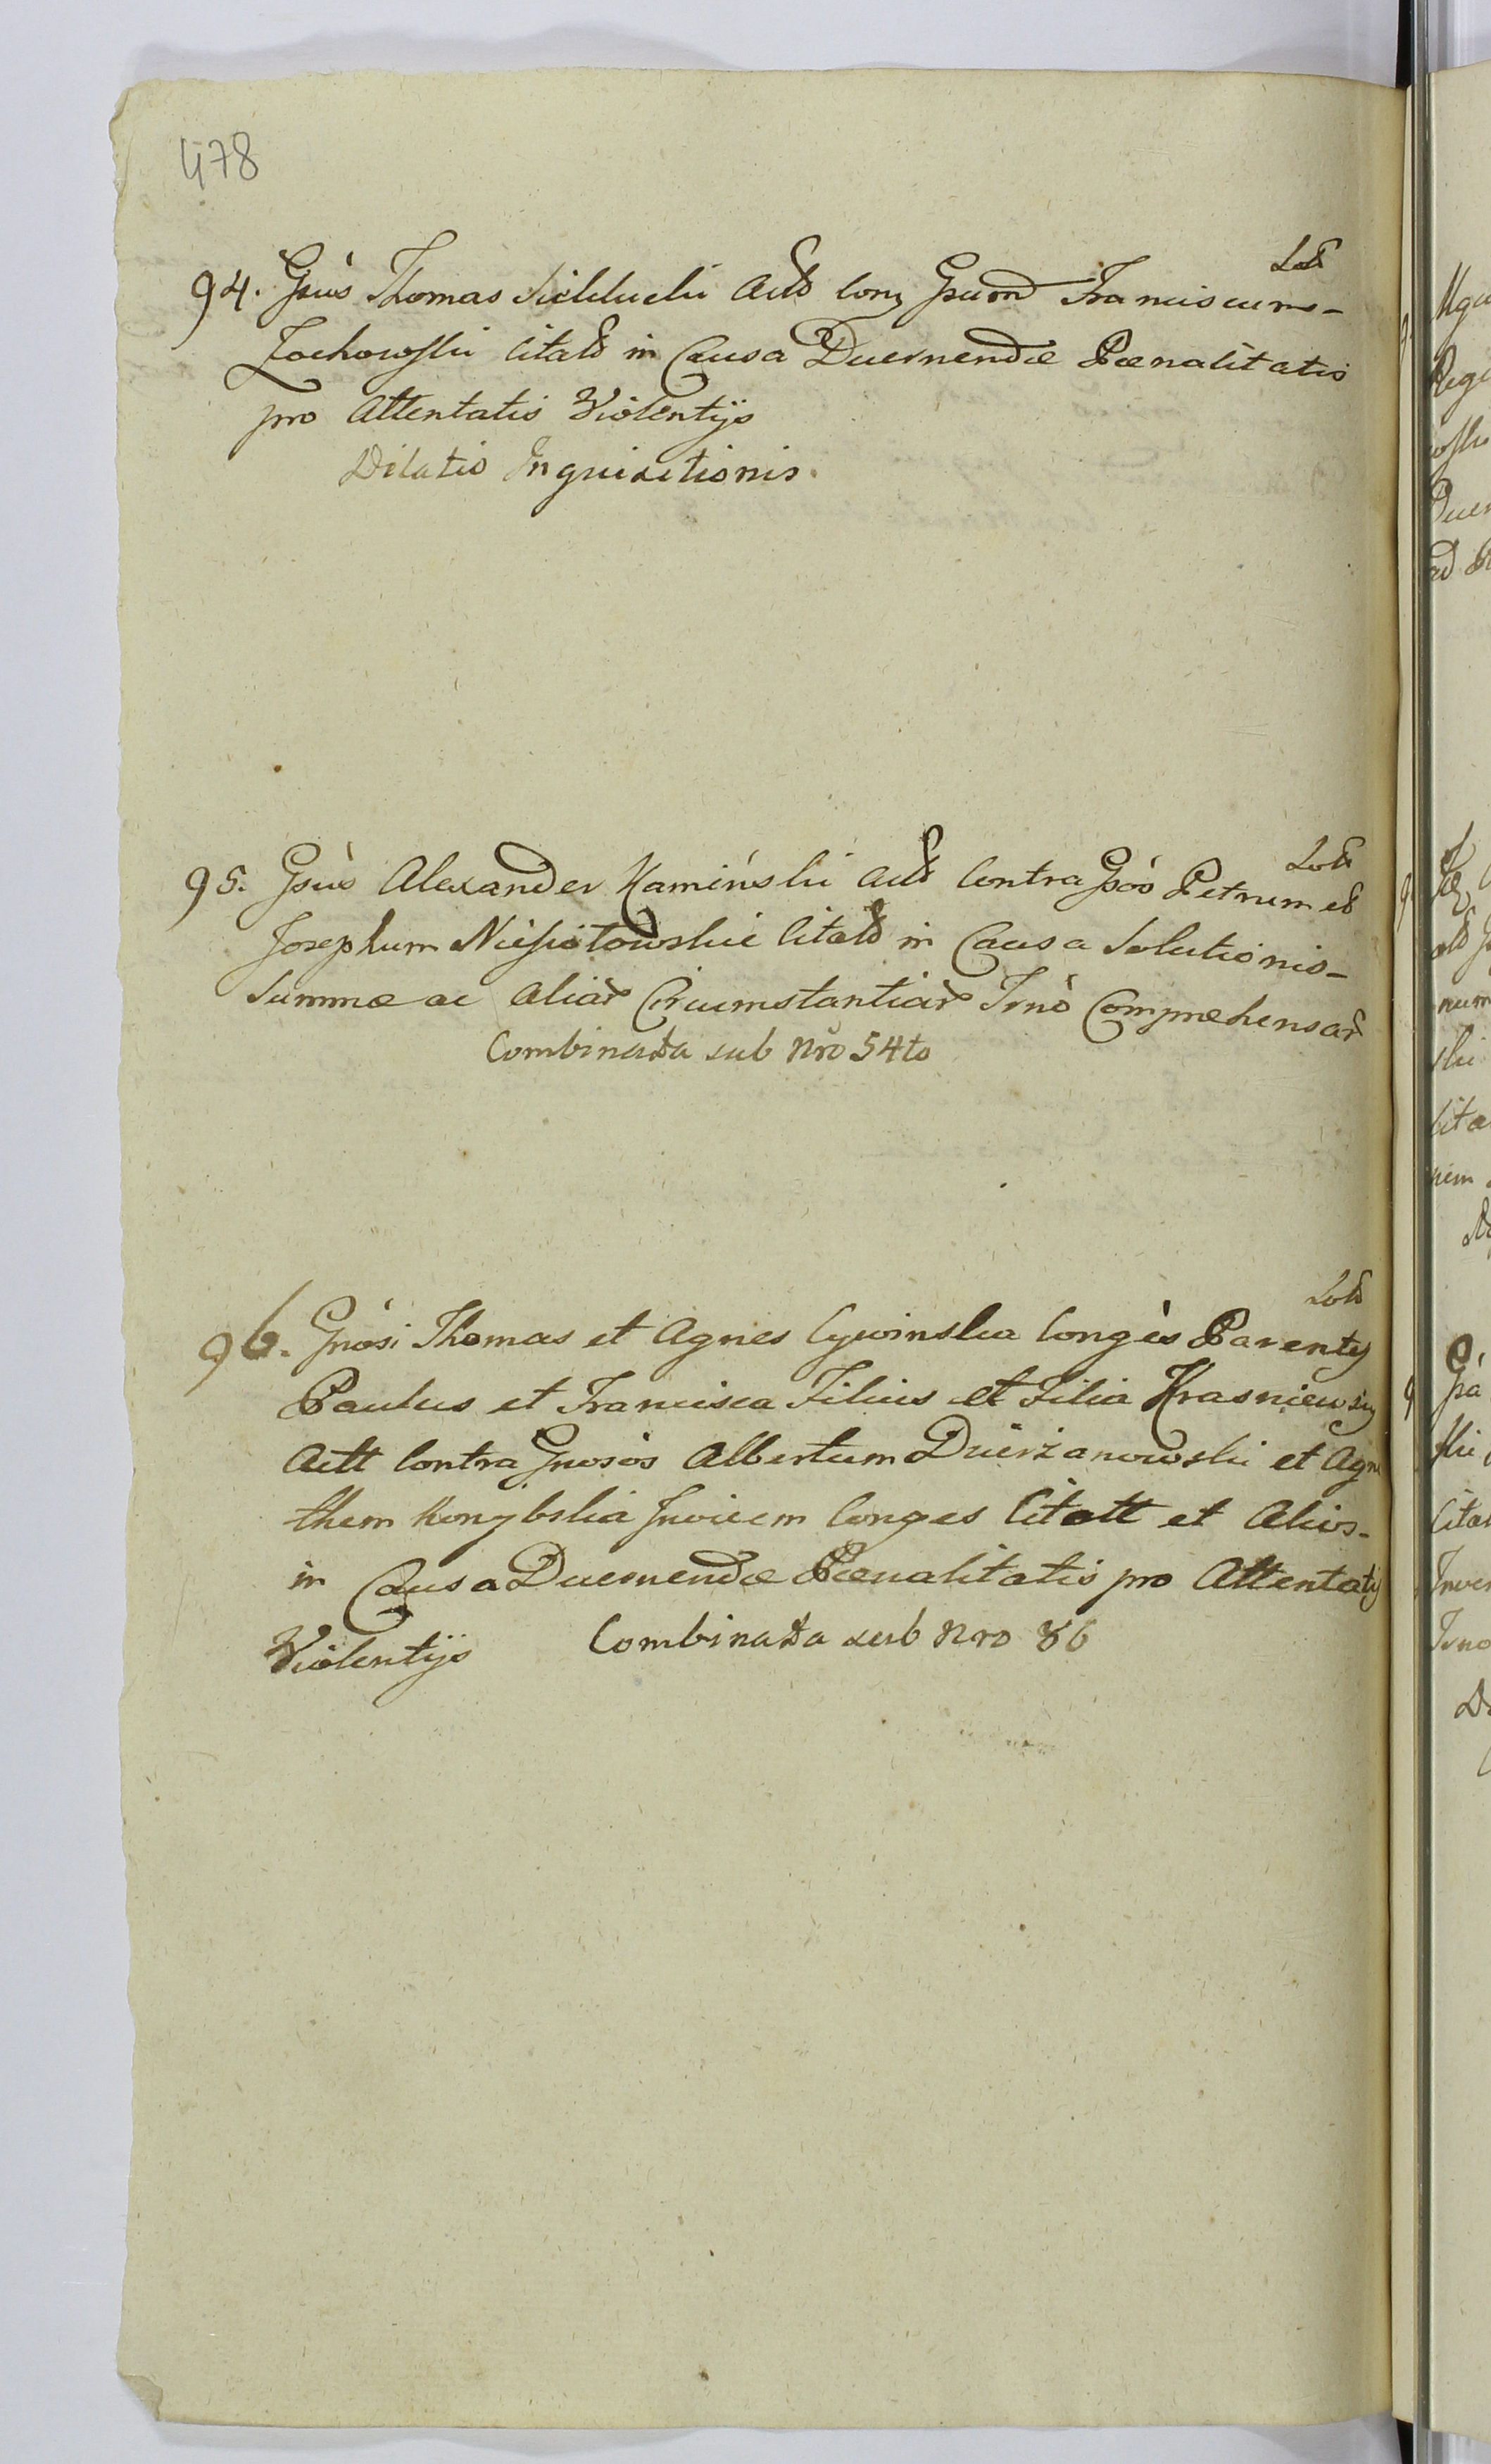 478
94. Gsus Thomas Act Con Gsum Franciscum -
Zochowski Citat in Causa Duernendæ Pœnalitatis
pro Attentatis Violentijs
Dilatio Inquisitionis.
95. Gsus Alexander Kamiński Act Contra Gsos Petrum et
Josephum Citat in Causa Solutionis -
Summæ ac aliar Circumstantiar Trno Comprehensar
Combinata sub Nro 54to
96. Gnosi Thomas et Agnes Cywinska Conges Parentes
Paulus et Francisca Filius et Filia Krasniewscy
Actt Contra Gnosos Albertum Dzierzanowski et Agne
them Invicem Conges Citatt et Alios -
in Causa Duernendæ Pœnalitatis pro Attentatis
Violentijs Combinata sub Nro 86